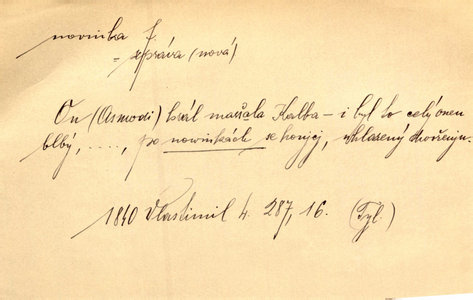 novinka f.
= zpráva (nová)
On (Asmodi) hrál maršala Kalba – i byl to celý onen
blbý, ...., po novinkách se honící, uhlazený dvořenín.
1840 Vlastimil 4. 287, 16. (Tyl.)